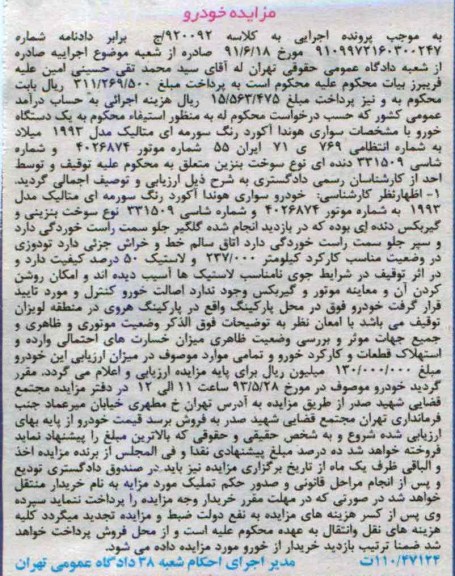 مزایده خودرو
به موجب پرونده اجرایی به کلاسه ۹۲۰۰۹۲/ج برابر دادنامه شماره
۹۱۰۹۹۷۲۱۶۰۳۰۰۲۴۷ مورخ ۹۱/۶/۱۸ صادره از شعبه موضوع اجراییه صادره
از شعبه دادگاه عمومی حقوقی تهران له آقای سید محمد تقی حسینی امین علیه
فریبرز بیات محکوم علیه محکوم است به پرداخت مبلغ ۳۱۱/۲۶۹/۵۰۰ ریال بابت
محکوم به و نیز پرداخت مبلغ ۱۵/۵۶۳/۴۷۵ ریال هزینه اجرائی به حساب درآمد
عمومی کشور که حسب درخواست محکوم له به منظور استیفاء محکوم به یک دستگاه
خورو با مشخصات سواری هوندا آکورد رنگ سورمه ای متالیک مدل ۱۹۹۳ میلاد
به شماره انتظامی ۷۶۹ ی ۷۱ ایران ۵۵ شماره موتور ۴۰۲۶۸۷۴ و شماره
شاسی ۳۳۱۵۰۹ دنده ای نوع سوخت بنزین متعلق به محکوم علیه توقیف و توسط
احد از کارشناسان رسمی دادگستری به شرح ذیل ارزیابی و توصیف اجمالی گردید.
۱- اظهارنظر کارشناسی: خودرو سواری هوندا آکورد رنگ سورمه ای متالیک مدل
۱۹۹۳ به شماره موتور ۴۰۲۶۸۷۴ و شماره شاسی ۳۳۱۵۰۹ نوع سوخت بنزینی و
گیربکس دنده ای بوده که در بازدید انجام شده گلگیر جلو سمت راست خوردگی دارد
و سپر جلو سمت راست خوردگی دارد اتاق سالم خط و خراش جزئی دارد تودوزی
در وضعیت مناسب کارکرد کیلومتر ۲۳۷/۰۰۰ و لاستیک ۵۰ درصد کیفیت دارد و
در اثر توقیف در شرایط جوی نامناسب لاستیک ها آسیب دیده اند و امکان روشن
کردن آن و معاینه موتور و گیربکس وجود ندارد اصالت خورو کنترل و مورد تایید
قرار گرفت خودرو فوق در محل پارکینگ واقع در پارکینگ هروی در منطقه لویزان
توقیف می باشد با امعان نظر به توضیحات فوق الذکر وضعیت موتوری و ظاهری و
جمیع جهات موثر و بررسی وضعیت ظاهری میزان خسارت های احتمالی وارده و
استهلاک قطعات و کارکرد خورو و تمامی موارد موصوف در میزان ارزیابی این خودرو
مبلغ ۱۳۰/۰۰۰/۰۰۰ میلیون ریال برای پایه مزایده ارزیابی و اعلام می گردد. مقرر
گردید خودرو موصوف در مورخ ۹۳/۵/۲۸ ساعت ۱۱ الی ۱۲ در دفتر مزایده مجتمع
قضایی شهید صدر از طریق مزایده به آدرس تهران خ مطهری خیابان میرعماد جنب
فرمانداری تهران مجتمع قضایی شهید صدر به فروش برسد قیمت خودرو از پایه بهای
ارزیابی شده شروع و به شخص حقیقی و حقوقی که بالاترین مبلغ را پیشنهاد نماید
فروخته خواهد شد ده درصد مبلغ پیشنهادی نقدا و فی المجلس از برنده مزایده اخذ
و الباقی ظرف یک ماه از تاریخ برگزاری مزایده نیز باید در صندوق دادگستری تودیع
و پس از انجام مراحل قانونی و صدور حکم تملیک مورد مزایه به نام خریدار منتقل
خواهد شد در صورتی که در مهلت مقرر خریدار وجه مزایده را پرداخت ننماید سپرده
وی پس از کسر هزینه های مزایده به نفع دولت ضبط و مزایده تجدید میگردد کلیه
هزینه های نقل وانتقال به عهده محکوم علیه است و از محل فروش پرداخت خواهد
شد ضمنا ترتیب بازدید خریدار از خورو مورد مزایده داده می شود.
۱۱۰/۴۷۱۲۴ت مدیر اجرای احکام شعبه ۳۸ دادگاه عمومی تهران